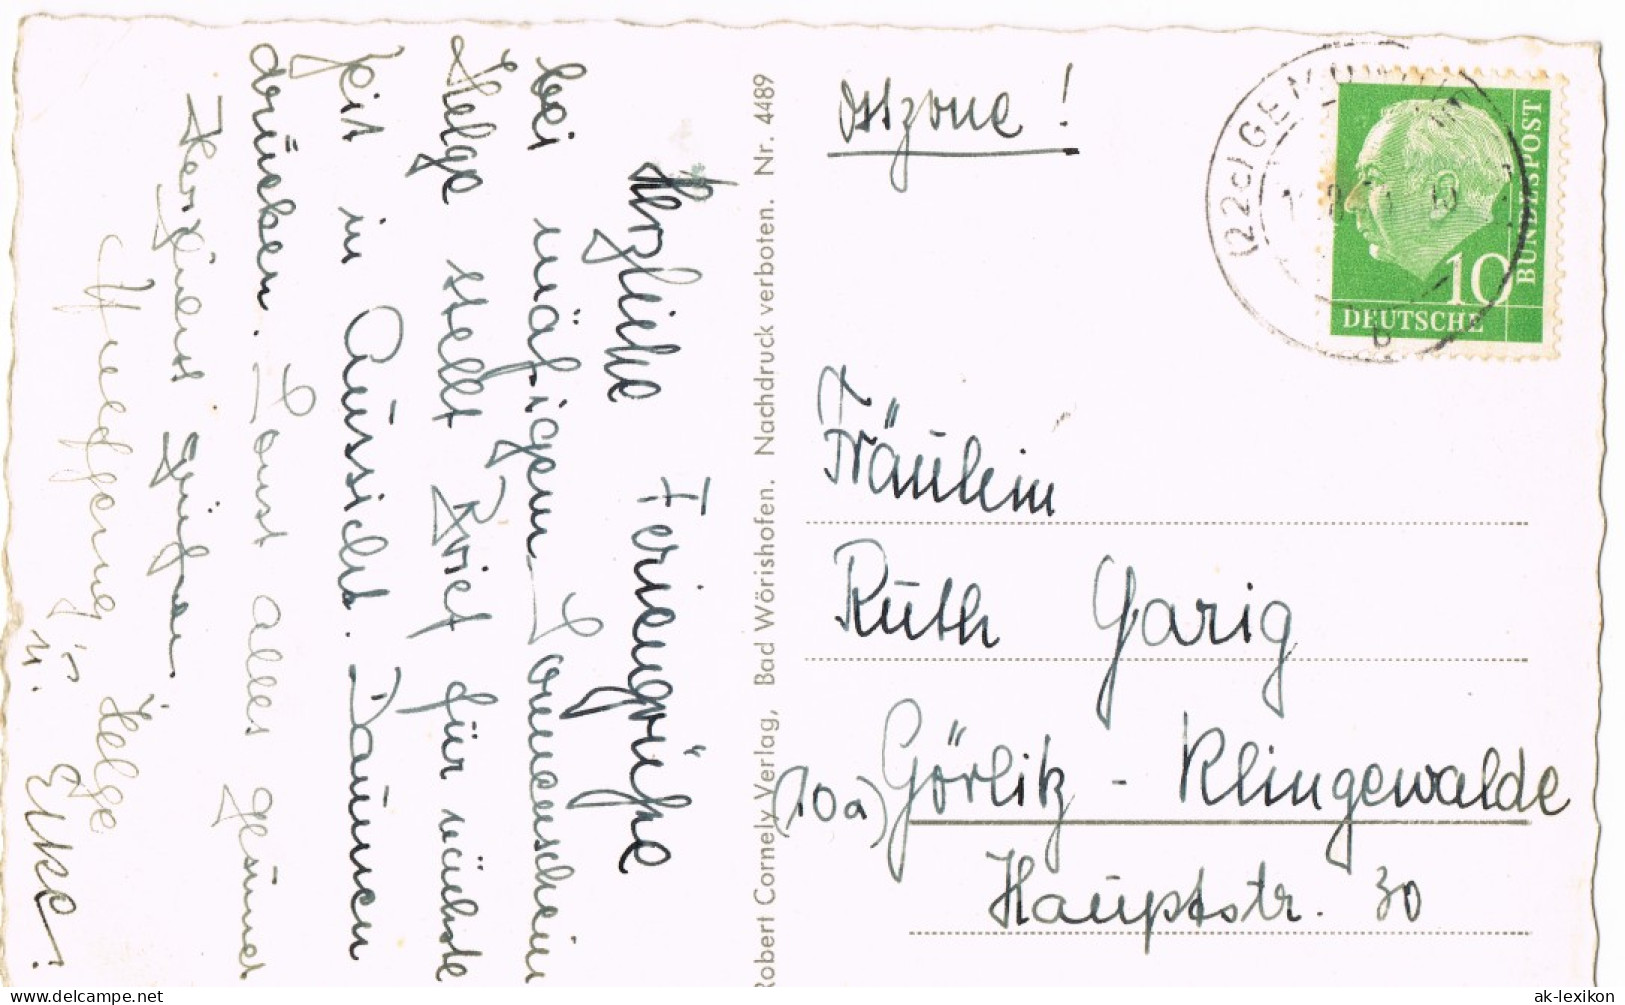 Herzliche Feriengrüße
bei mäßigem Sonnenschein
Helge stellt Brief für nächste
Zeit in Aussicht. Daumen
drücken. Sonst alles gesund
Herzlichst
Helge
u. Elke.
Robert Cornely Verlag, Bad Wörishofen. Nachdruck verboten. Nr. 4489
Ostzone!
(22c) GEMÜND
b
10
DEUTSCHE
BUNDESPOST
Fräulein
Ruth Garig
(10a) Görlitz - Klingewalde
Hauptstr. 30
ak-lexikon